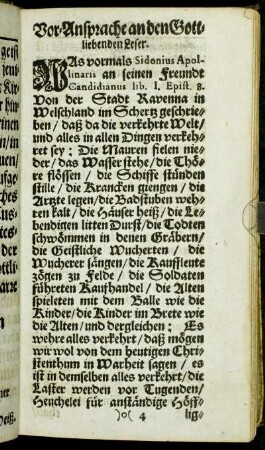 Vor-Ansprache an den Gott-
liebenden Leser.
Was vormals Sidonius Apol-
linaris an seinen Freundt
Candidianus lib. I. Epist. 8.
Von der Stadt Ravenna in
Welschland im Schertz geschrie-
ben / daß da die verkehrte Welt /
und alles in allen Dingen verkeh-
ret sey; Die Mauren fielen nie-
der / das Wasser stehe / die Thö-
re flössen / die Schiffe stünden
stille / die Krancken giengen / die
Artzte legen / die Badstuben weh-
ren kalt / die Häuser heiß / die Le-
bendigen litten Durst / die Todten
schwömmen in denen Gräbern /
die Geistliche Wucherten / die
Wucherer sängen / die Kauffleute
zögen zu Felde / die Soldaten
führeten Kaufhandel / die Alten
spieleten mit dem Balle wie die
Kinder / die Kinder im Brete wie
die Alten / und dergleichen: Es
wehre alles verkehrt / daß mögen
wir wol von dem heutigen Chri-
stenthum in Warheit sagen / es
ist in demselben alles verkehrt / die
Laster werden vor Tugenden /
Heuchelei für anständige Höff-
)o( 4 lig-